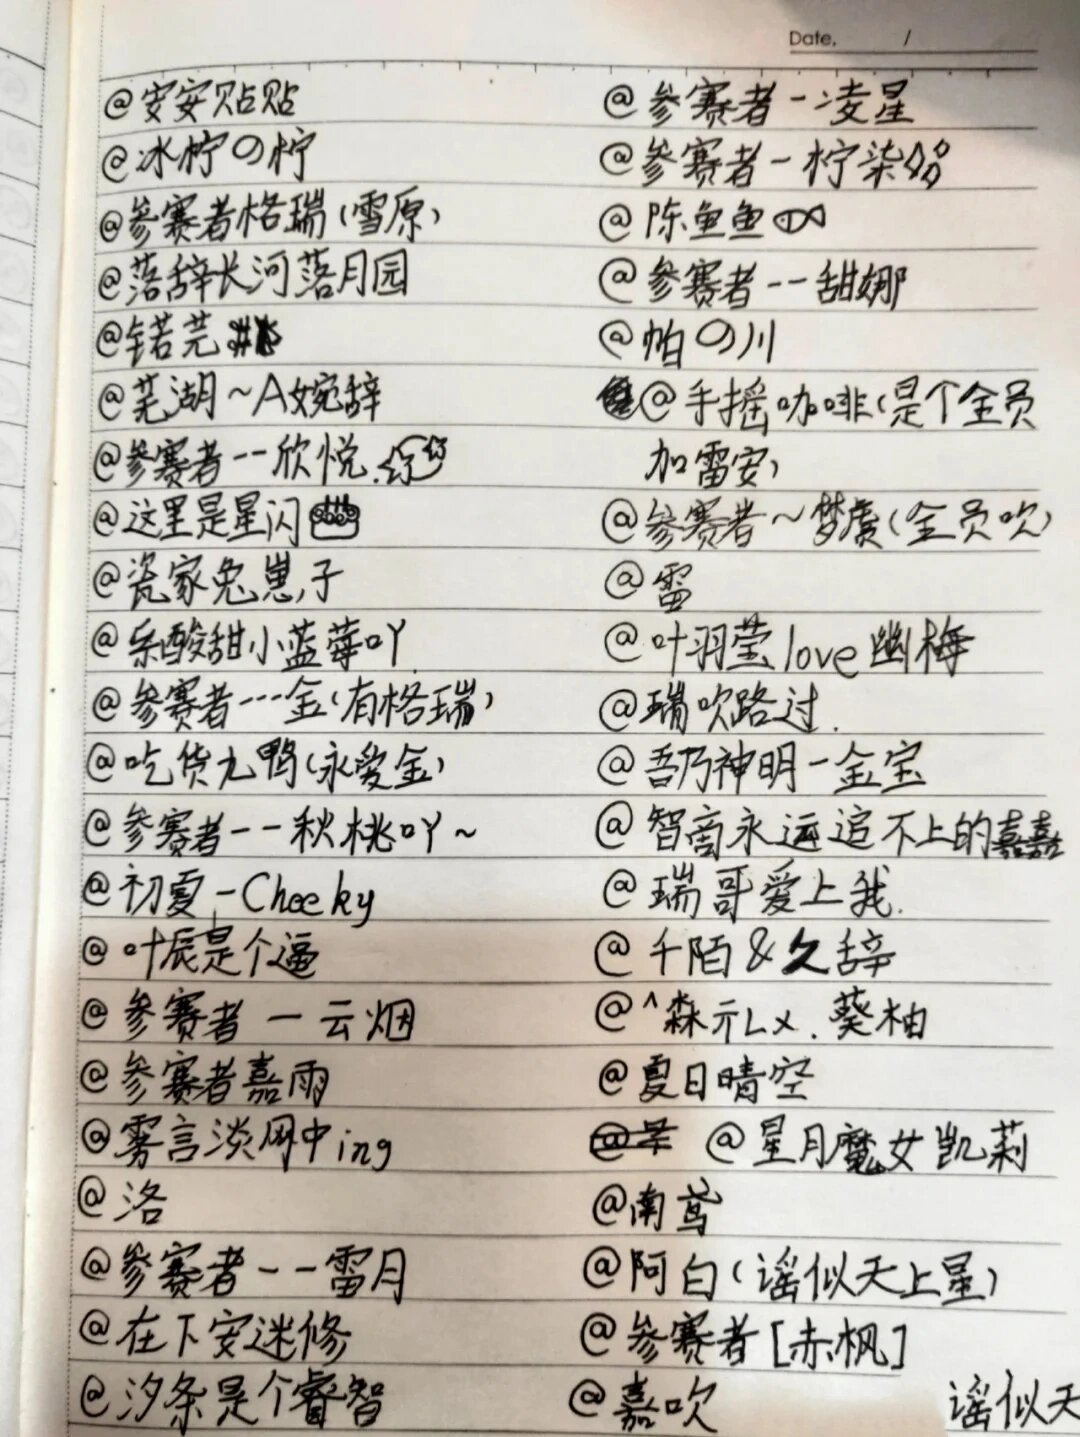 Date. /
@安安贴贴
@冰柠の柠
@参赛者格瑞(雪原)
@落辞长河落月园
@锘芫
@芜湖~A婉辞
@参赛者--欣悦
@这里是星闪
@瓷家兔崽子
@亲酸甜小蓝莓吖
@参赛者---金(有格瑞)
@吃货九鸭(永爱金)
@参赛者--秋桃吖~
@初夏-Cheeky
@叶辰是个逼
@参赛者-云烟
@参赛者嘉雨
@雾言淡网中ing
@洛
@参赛者--雷月
@在下安迷修
@汐条是个睿智
@参赛者-凌星
@参赛者-柠柒
@陈鱼鱼
@参赛者--甜娜
@帕の川
@手摇咖啡(是个全员
加雷安)
@参赛者~梦(全员吹)
@雷
@叶羽莹love幽梅
@瑞吹路过.
@吾乃神明-金宝
@智商永远追不上的嘉嘉
@瑞哥爱上我.
@千陌&久辞
@^森示Lx.葵柚
@夏日晴空
@星月魔女凯莉
@南鸢
@阿白(谣似天上星)
@参赛者[赤枫]
@嘉吹
谣似天